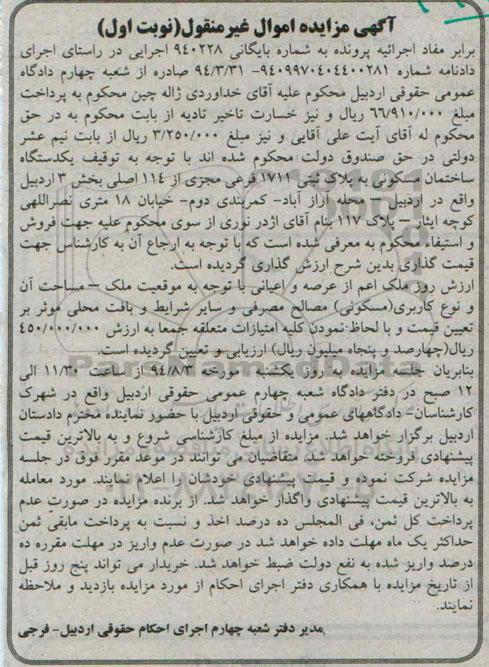 آگهی مزایده اموال غیرمنقول(نوبت اول)
برابر مفاد اجرائیه پرونده به شماره بایگانی ۹۴۰۲۲۸ اجرایی در راستای اجرای
دادنامه شماره ۹۴۰۹۹۷۰۴۰۴۴۰۰۲۸۱- ۹۴/۳/۳۱ صادره از شعبه چهارم دادگاه
عمومی حقوقی اردبیل محکوم علیه آقای خداوردی ژاله چین محکوم به پرداخت
مبلغ ۶۶/۹۱۰/۰۰۰ ریال و نیز خسارت تاخیر تادیه از بابت محکوم به در حق
محکوم له آقای آیت علی آقایی و نیز مبلغ ۳/۲۵۰/۰۰۰ ریال از بابت نیم عشر
دولتی در حق صندوق دولت محکوم شده اند با توجه به توقیف یکدستگاه
ساختمان مسکونی به پلاک ثبتی ۱۷۱۱ فرعی مجزی از ۱۱۴ اصلی بخش ۳ اردبیل
واقع در اردبیل – محله آراز آباد- کمربندی دوم- خیابان ۱۸ متری نصراللهی
کوچه ایثار – پلاک ۱۱۷ بنام آقای اژدر نوری از سوی محکوم علیه جهت فروش
و استیفاء محکوم به معرفی شده است که با توجه به ارجاع آن به کارشناس جهت
قیمت گذاری بدین شرح ارزش گذاری گردیده است.
ارزش روز ملک اعم از عرصه و اعیانی با توجه به موقعیت ملک – مساحت آن
و نوع کاربری(مسکونی) مصالح مصرفی و سایر شرایط و بافت محلی موثر بر
تعیین قیمت و با لحاظ نمودن کلیه امتیازات متعلقه جمعا به ارزش ۴۵۰/۰۰۰/۰۰۰
ریال(چهارصد و پنجاه میلیون ریال) ارزیابی و تعیین گردیده است.
بنابراین جلسه مزایده در روز یکشنبه مورخه ۹۴/۸/۳ از ساعت ۱۱/۳۰ الی
۱۲ صبح در دفتر دادگاه شعبه چهارم عمومی حقوقی اردبیل واقع در شهرک
کارشناسان- دادگاههای عمومی و حقوقی اردبیل با حضور نماینده محترم دادستان
اردبیل برگزار خواهد شد. مزایده از مبلغ کارشناسی شروع و به بالاترین قیمت
پیشنهادی فروخته خواهد شد. متقاضیان می توانند در موعد مقرر فوق در جلسه
مزایده شرکت نموده و قیمت پیشنهادی خودشان را اعلام نمایند. مورد معامله
به بالاترین قیمت پیشنهادی واگذار خواهد شد. از برنده مزایده در صورت عدم
پرداخت کل ثمن، فی المجلس ده درصد اخذ و نسبت به پرداخت مابقی ثمن
حداکثر یک ماه مهلت داده خواهد شد در صورت عدم واریز در مهلت مقرره ده
درصد واریز شده به نفع دولت ضبط خواهد شد. خریدار می تواند پنج روز قبل
از تاریخ مزایده با همکاری دفتر اجرای احکام از مورد مزایده بازدید و ملاحظه
نمایند.
مدیر دفتر شعبه چهارم اجرای احکام حقوقی اردبیل- فرجی